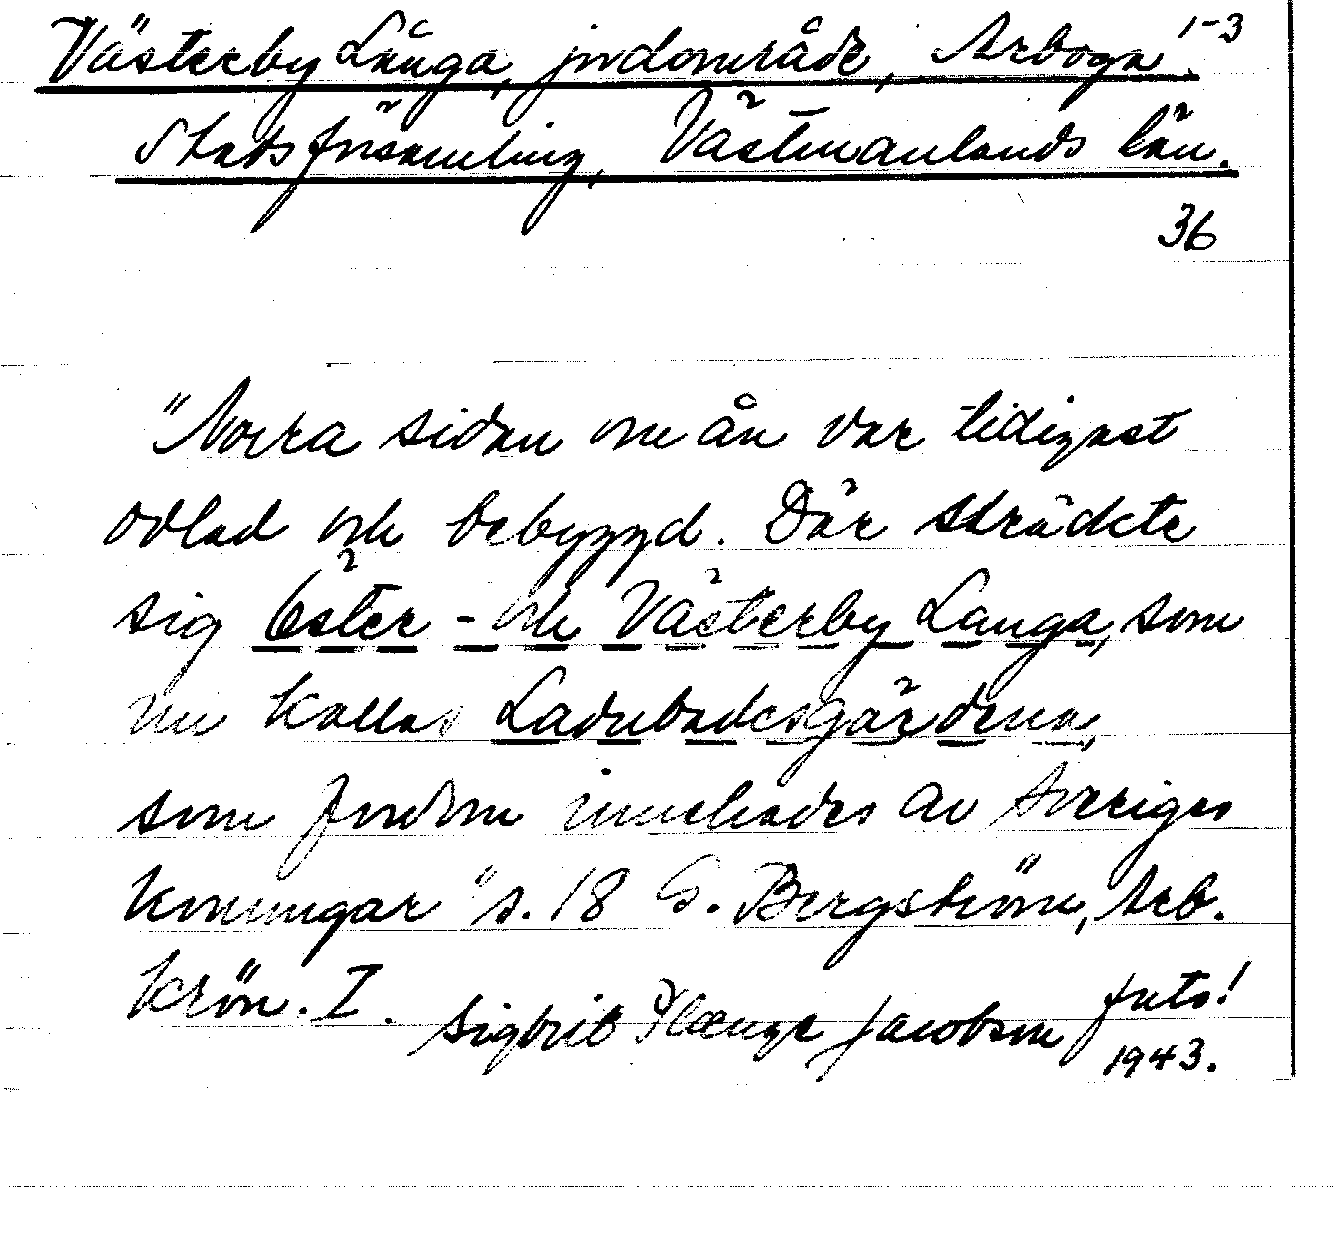 Västerby Långa, jordområde, Arboga 1-3
Stadsförsamling, Västmanlands län.
36
"Norra sidan om ån var tidigast
odlad och bebyggd. Där sträckte
sig Öster - och Västerby Långa, som
nu kallas Ladubadesgärdena,
som fordom innehades av Sveriges
konungar" s. 18 G. Bergström, Arb.
Krön. I.
Sigbrit Plænge Jacobson foto!
1943.